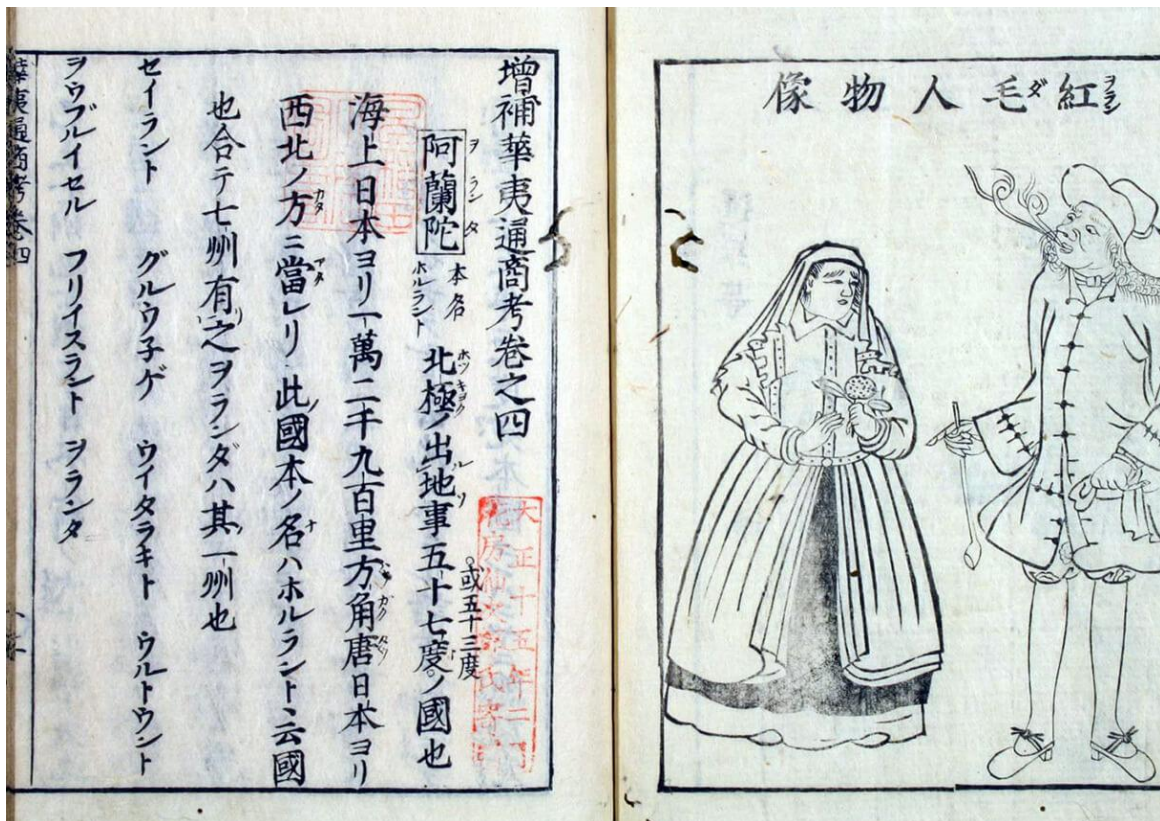 紅毛人物像
增補華夷通商考卷之四
阿蘭陀 本名ホルラント 北極ノ出地事五十七度ノ國也
或五十三度
海上日本ヨリ一萬二千九百里方角唐日本ヨリ
西北ノ方ニ當レリ此國本ノ名ハホルラントト云國
也合テ七州有之ヲランダハ其一州也
セイラント グルウ子ゲ ウイタラキト ウルトウント
ヲウブルイセル フリイスラント ヲランタ
華夷通商考卷四
大正十五年二月